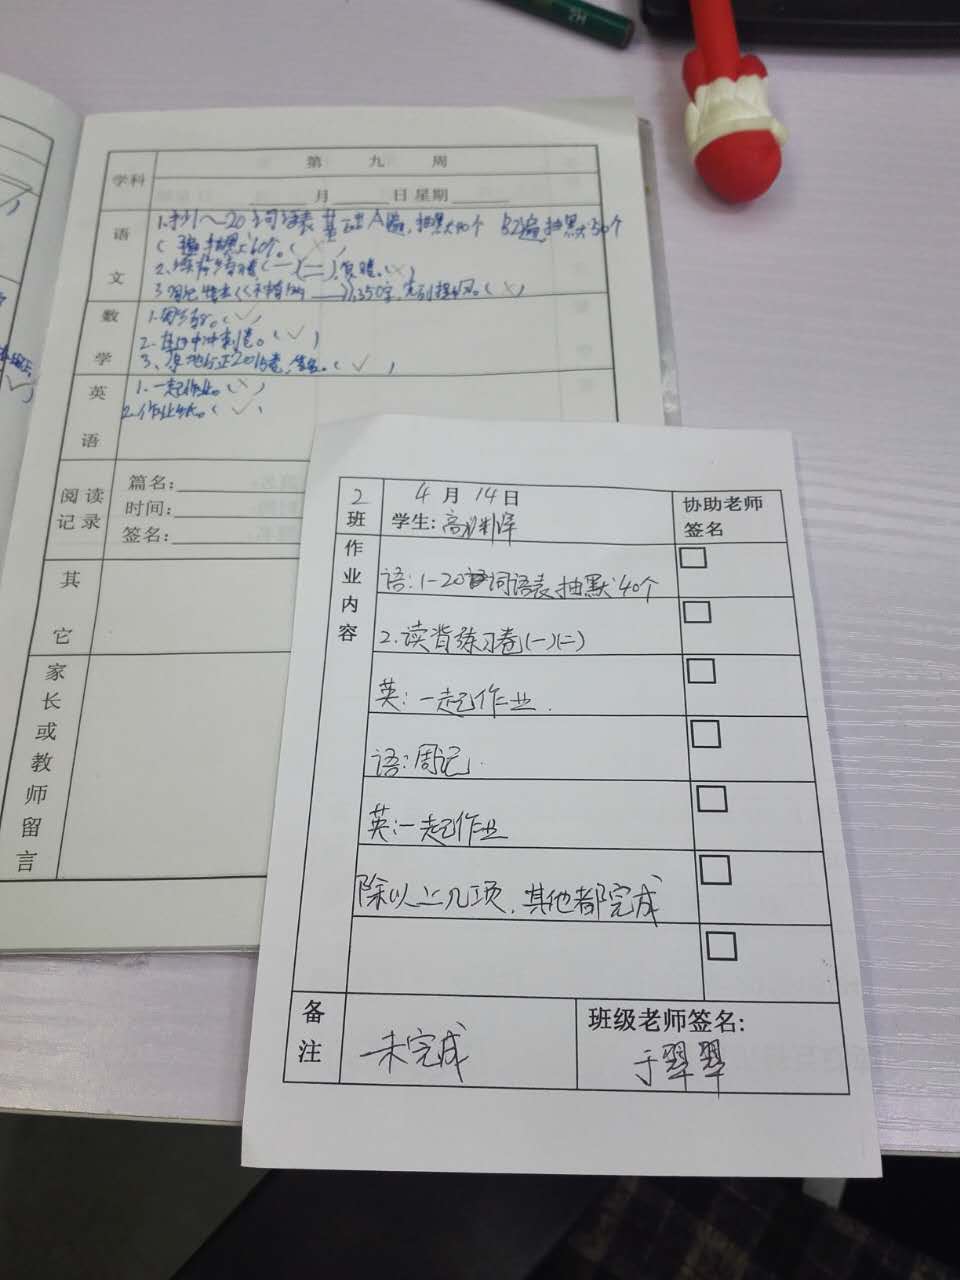 H2
第 九 周
学科
月 日 星期
语文
1.抄1~20词语表 基础A遍,抽默40个 B2遍,抽默50个
C 遍 抽默60个。(×)
2.读背练习卷(一)(二),复睛。(×)
350字,
数学
1. (✓)
2. 期中冲刺卷。(✓)
3、订正 卷,签名。(✓)
英语
1.一起作业。(×)
2.作业纸。(✓)
阅读记录
篇名:
时间:
签名:
其它
家长或教师留言
2班
4月14日
学生:高
协助老师签名
作业内容
语:1-20词语表抽默40个
2.读背练习卷(一)(二)
英:一起作业.
语:周记.
英:一起作业
除以上几项,其他都完成
备注
未完成
班级老师签名:
于翠翠